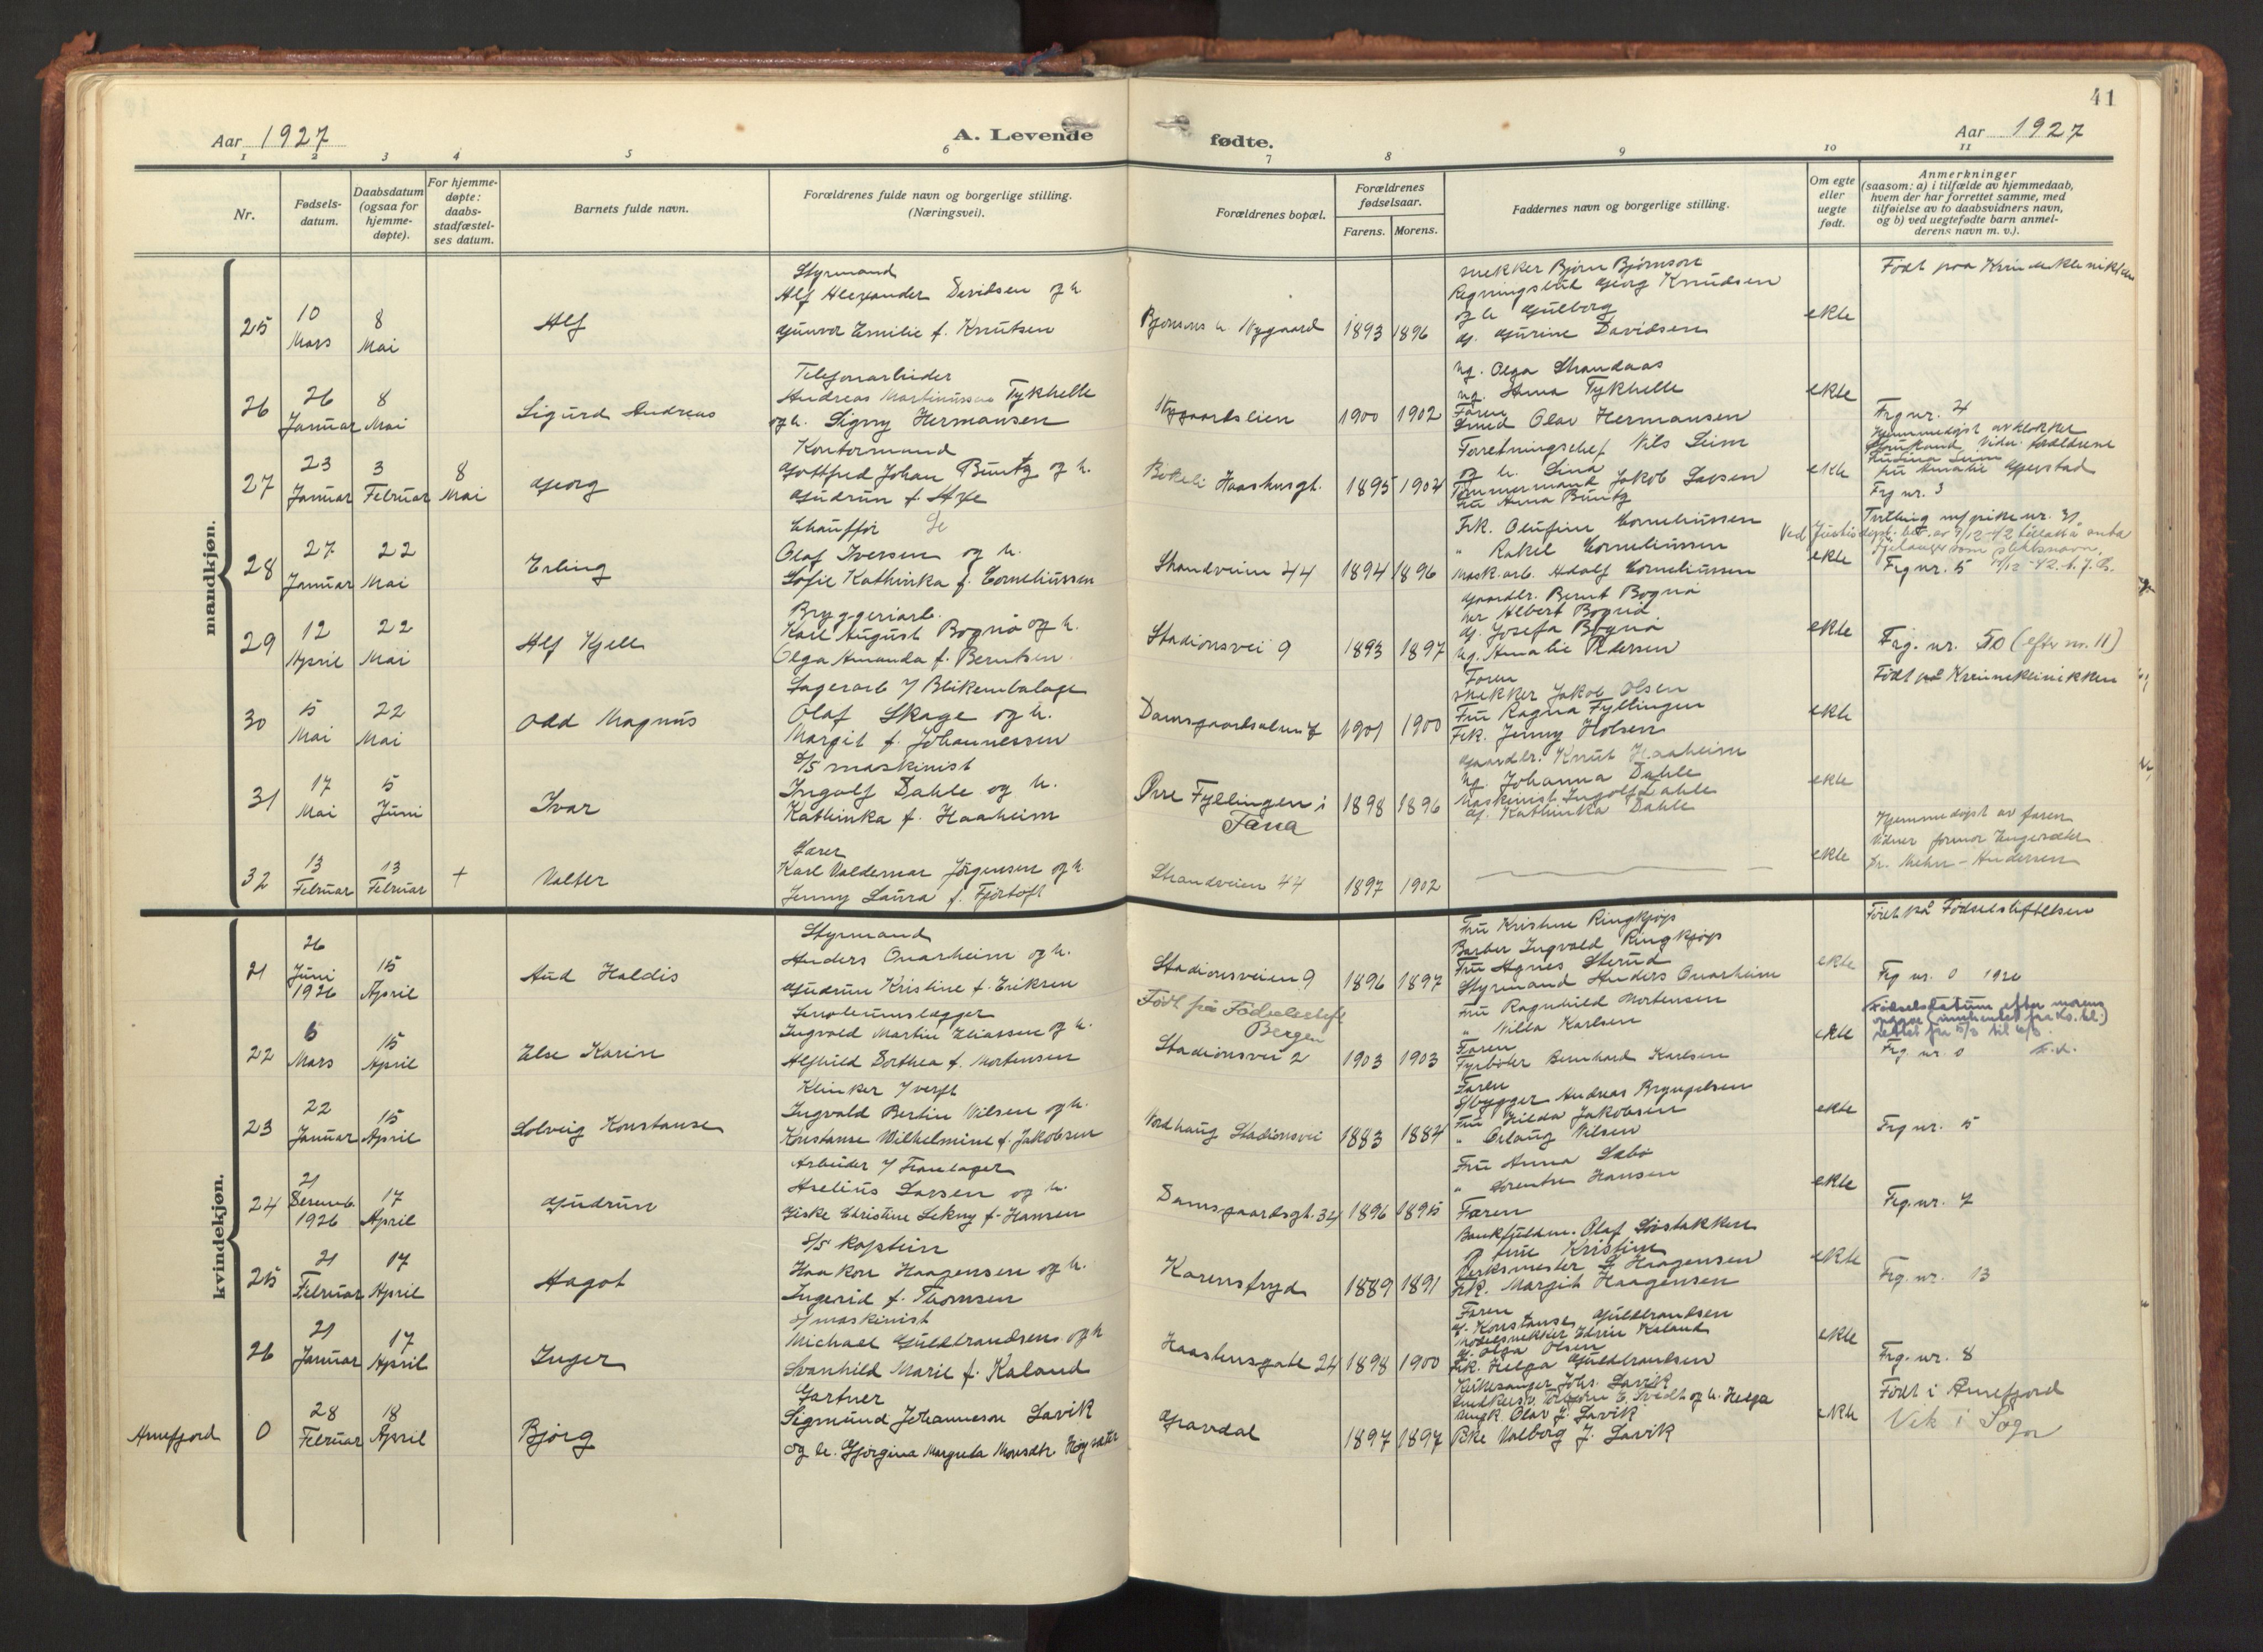 41
Aar 1927
A. Levende
fødte.
Aar 1927
1 2 3 4 5 6 7 8 9 10 11
Nr.
Fødsels-
datum.
Daabsdatum
(ogsaa for
hjemme-
døpte).
For hjemme-
døpte:
daabs-
stadfæstel-
ses datum.
Barnets fulde navn.
Forældrenes fulde navn og borgerlige stilling.
(Næringsvei).
Forældrenes bopæl.
Forældrenes
fødselsaar.
Farens. Morens.
Faddernes navn og borgerlige stilling.
Om egte
eller
uegte
født.
Anmerkninger
(saasom: a) i tilfælde av hjemmedaab,
hvem der har forrettet samme, med
tilføielse av to daabsvidners navn,
og b) ved uegtefødte barn anmel-
derens navn m. v.).
mandkjøn.
25
10
Mars
8
Mai
Alf
Styrmand
Alf Alexander Davidsen og h.
Gunvor Emilie f. Knutsen
Bjørnsons h. Nygaard
1893 1896
Snekker Bjørn Bjørnson
Regningsbud Georg Knudsen
og h. Gulborg
G. Gurine Davidsen
ekte
Født paa Kvindeklinikken
26
26
Januar
8
Mai
Sigurd Andreas
Telefonarbeider
Andreas Martinussen Tykhelle
og h. Signy Hermansen
Nygaardslien
1900 1902
Ug. Olga Strandaas
Ug. Anna Tykhelle
Faren
Smed Olav Hermansen
ekte
Frg nr. 4
27
23
Januar
3
Februar
8
Mai
Georg
Kontormand
Gottfred Johan Buntz og h.
Gudrun f. Axe
Bøkeli Haashusgt.
1895 1904
Forretningschef Nils Seim
og h. Lina
Tømmermand Jakob Larsen
Fru Anna Buntz
ekte
Hjemmedøpt av klokker
fru Amalie Gjerstad
Frg nr. 3
28
27
Januar
22
Mai
Erling
Chauffør
Olaf Iversen og h.
Sofie Kathinka f. Corneliussen
Strandveien 44
1894 1896
Frk. Olufine Corneliussen
" Rakel Corneliussen
Mask.arb. Adolf Corneliussen
ekte
Tvilling m/ pike nr. 31
Frg nr. 5
29
12
April
22
Mai
Alf Kjell
Bryggeriarb.
Karl August Bognø og h.
Olga Amanda f. Berntsen
Stadionsvei 9
1893 1897
Gaardbr. Bernt Bognø
Albert Bognø
G. Josefa Bognø
Ug. Amalie Pedersen
ekte
Frg. nr. 50 (efter nr. 11)
30
5
Mai
22
Mai
Odd Magnus
Lagerarb v/ Blikemballage
Olaf Skage og h.
Margit f. Johannessen
Damsgaardsalmen 7
1901 1900
Faren
Snekker Jakob Olsen
Fru Ragna Fyllingen
Frk. Jenny Holsen
ekte
Født på Kvinneklinikken
31
17
Mai
5
Juni
Ivar
D/S maskinist
Ingolf Dahle og h.
Kathinka f. Haaheim
Øvre Fyllingen i
Fana
1898 1896
Gaardbr. Knut Haaheim
Ug. Johanna Dahle
Maskinist Ingolf Dahle
G. Kathinka Dahle
ekte
32
13
Februar
13
Februar
+
Valter
Lærer
Karl Valdemar Jörgensen og h.
Jenny Laura f. Fjörtoft
Strandveien 44
1897 1902
ekte
Hjemmedøpt av faren
kvindekjøn.
21
26
Juni
1926
15
April
Aud Haldis
Styrmand
Anders Onarheim og h.
Gudrun Kristine f. Eriksen
Stadionsveien 9
1896 1897
Fru Kristine Ringkjøp
Barber Ingvald Ringkjøp
Fru Agnes Sterud
Styrmand Anders Onarheim
ekte
Født på Fødselsstiftelsen
Frg nr. 0 1926
22
6
Mars
15
April
Else Karin
Linoleumslægger
Ingvald Martin Eliassen og h.
Alfhild Dorthea f. Mortensen
Født på Fødselsstift
Bergen
Stadionsvei 2
1903 1903
Fru Ragnhild Mortensen
" Vilda Karlsen
Faren
Fyrbøter Bernhard Karlsen
ekte
Fødselsdatum efter morens
opgave (innhentet fra Ks. kl.)
rettet fra 5/3 til 6/3.
Frg. nr. 0
23
22
Januar
15
April
Solveig Konstanse
Klinker v/ verft
Ingvald Bertin Nilsen og h.
Konstanse Wilhelmine f. Jakobsen
Nordhaug Stadionsvei
1883 1884
Faren
S/bygger Andreas Bryngelsen
Fru Hilda Jakobsen
" Oslaug Nilsen
ekte
Frg nr. 5
24
21
Desemb.
1926
17
April
Gudrun
Arbeider v/ Tranlager
Aselius Larsen og h.
Giske Christine Lekny f. Hansen
Damsgaardsgt. 34
1896 1895
Fru Anna Sæbø
" Lorentse Hansen
Faren
ekte
Frg. nr. 7
25
21
Februar
17
April
Aagot
D/S kaptein
Haakon Haagensen og h.
Ingerid f. Thomsen
Karensfryd
1889 1891
Bankfuldm. Olaf Løstakken
og frue Kristine
Verksmester L Haagensen
Frk. Margit Haagensen
ekte
Frg. nr. 13
26
21
Januar
17
April
Inger
S/maskinist
Michael Guldbrandsen og h
Svanhild Marie f. Kaland
Haashusgate 24
1898 1900
Faren
G. Konstanse Guldbrandsen
Modelsnekker Edvin Kaland
G. Olga Olsen
Frk. Helga Guldbrandsen
ekte
Frg. nr. 8
Arnefjord
0
28
Februar
18
April
Bjørg
Gartner
Sigmund Johanneson Lavik
og h. Gjörgina Margreta Monsdtr. Höysæter
Gravdal
1897 1897
Kirkesanger Johs. Lavik
Ungk. Olav J. Lavik
Pike Valborg J. Lavik
ekte
Født i Arnefjord
Vik i Sogn